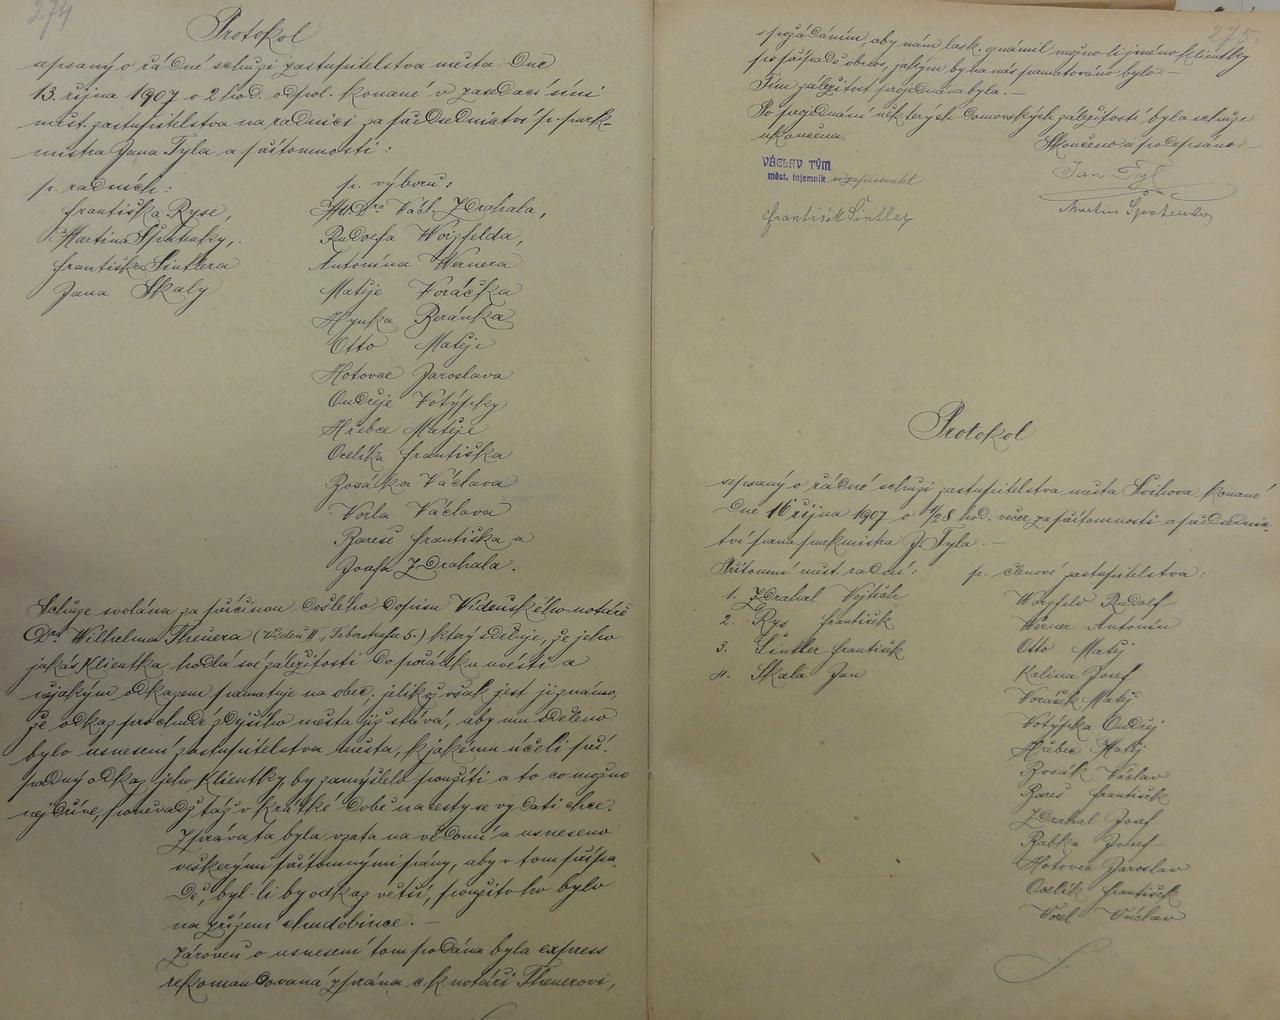 274
Protokol
sepsaný o řádné schůzi zastupitelstva města dne
13. října 1907 o 2 hod. odpol. konané v zasedací síni
měst. zastupitelstva na radnici za předsednictví p. purk-
mistra Jana Tyla a přítomnosti:
p. radních:
Františka Ryse,
Martina Špotenky,
Františka Šintlera
Jana Skaly
p. výborů:
Václ. Zdrahala,
Rudolfa Woizfelda,
Antonína Wernera
Matěje Voráčka
Hynka Beránka
Otto Matěje
Hotovce Jaroslava
Ondřeje Votýpky
Hřebce Matěje
Ocelíka Františka
Bosáka Václava
Vorla Václava
Bareše Františka a
Josefa Zdrahala.
Schůze svolána za příčinou došlého dopisu Vídeňského notáře
Dra Wilhelma Theuera (Vídeň II, Taborstrasse 5.) který sděluje, že jeho
jakás Klientka hodlá své záležitosti do pořádku uvésti a
nějakým odkazem pamatuje na obec, jelikož však jest jí známo,
že odkaz pro chudé zdejšího města již stává, aby mu sděleno
bylo usnesení zastupitelstva města, k jakému účeli pří-
padný odkaz jeho Klientky by zamýšlelo použíti a to co možno
nejdříve, poněvadž táž v krátké době na cesty se vydati chce.
Zpráva ta byla vzata na vědomí a usneseno
veškerými přítomnými pány, aby v tom přípa-
dě, byl-li by odkaz větší, použito ho bylo
na zřízení chudobince. –
Zároveň o usnesení tom podána byla express
rekomandovaná zpráva c k notáři Theuerovi,
275.
s požádáním, aby nám lask. oznámil možno-li jméno klientky
po případě obnos, jakým by na nás pamatováno bylo. –
Tím záležitost projednána byla. –
Po projednání některých domovských záležitostí byla schůze
ukončena.
Skončeno a podepsáno –
VÁCLAV TÝM
měst. tajemník
zapisovatel
Jan Tyl
Martin Špotenka
František Šintler
Protokol
sepsaný o řádné schůzi zastupitelstva města Švihova konané
dne 16 října 1907 o 1/28 hod. večer za přítomnosti a předsednic-
tví pana purkmistra J. Tyla. –
Přítomni měst. radní:
1. Zdrahal Vojtěch
2. Rys František
3. Šintler František
4. Skala Jan
p. členové zastupitelstva:
Woizfeld Rudolf
Werner Antonín
Otto Matěj
Kalina Josef
Voráček Matěj
Votýpka Ondřej
Hřebec Matěj
Bosák Václav
Bareš František
Zdrahal Josef
Babka Josef
Hotovec Jaroslav
Ocelík František
Vorel Václav